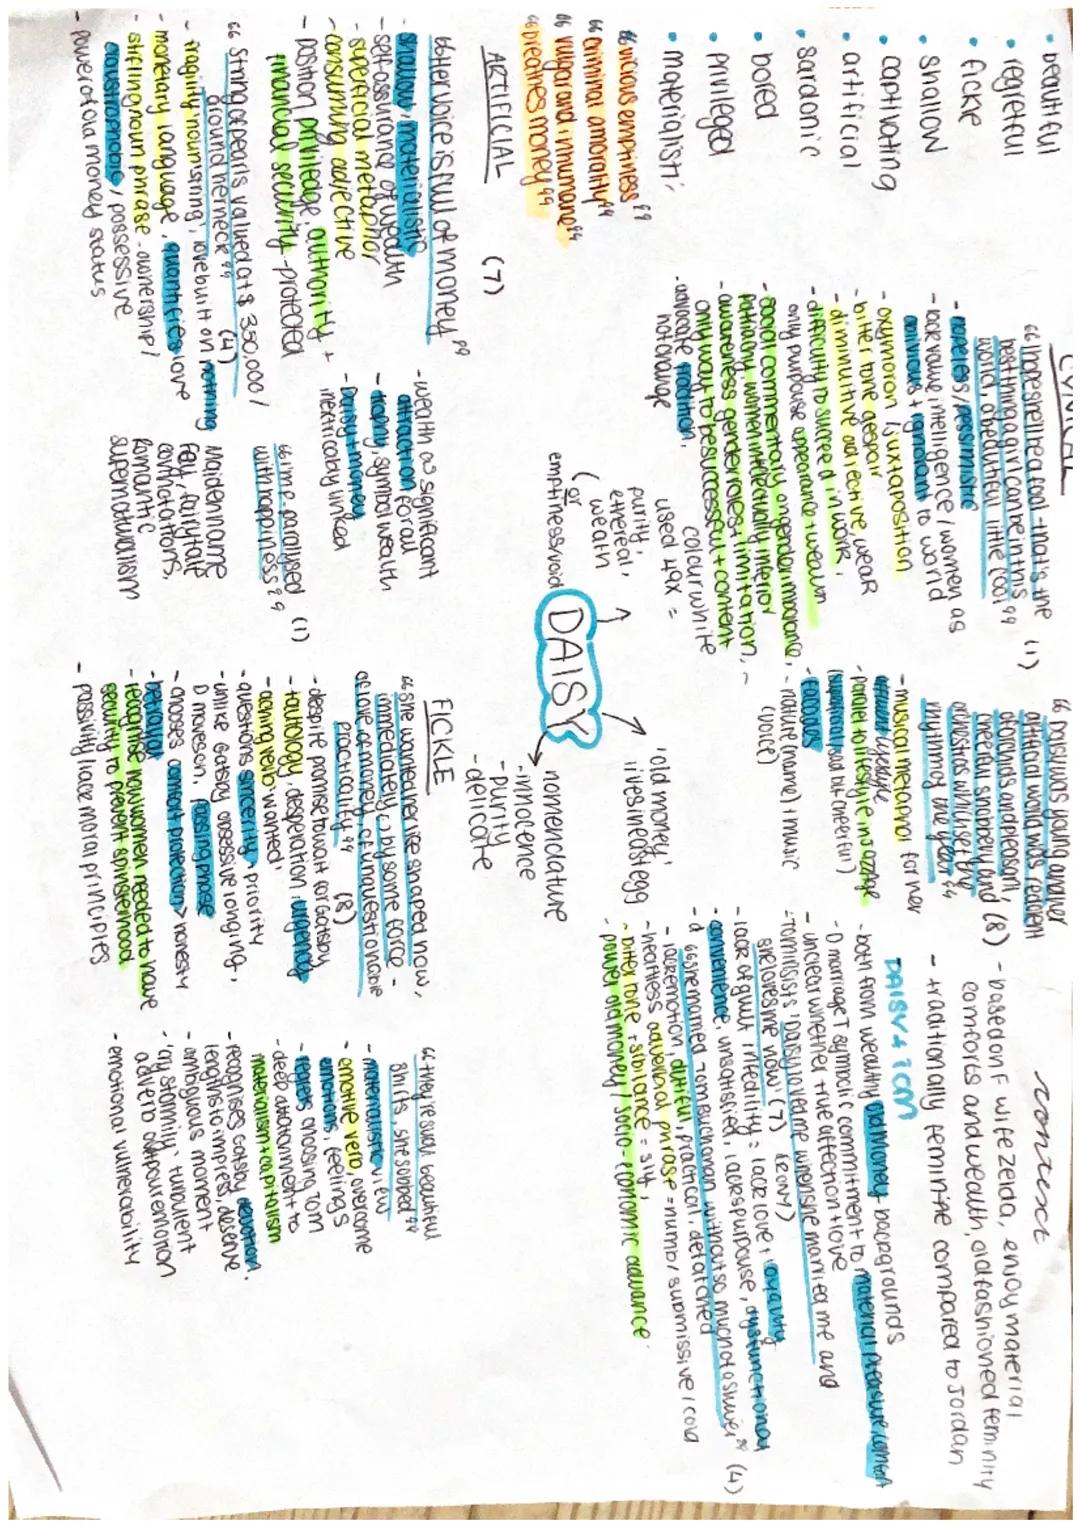 • beautiful
• regretful
• fickle
• shallow
• captivating
• artificial
• sardonic
• bored
• privileged
• materialistic
"vicious emptiness"
"criminal amorality"
"vulgar and inhumane"
"breathes money"
CYNICAL
"I hope she'll be a fool - that's the (1)
best thing a girl can be in this
world, a beautiful little fool"
- hopeless / pessimistic
- lack value, intelligence / women as
+ ignorant to world
- oxymoron juxtaposition
- bitter tone despair
- diminuitive adjective, weak
- difficulty to succeed in work,
only purpouse appearance + wealth
- social commentary on gender imbalance,
patriarchy women intellectually inferior
- awareness gender roles + limitation,
only way to be successful + content
- advocate tradition,
not change
"Daisy was young and her
artificial world was redolent
of orchids and pleasant, (8)
cheerful snobbery and
orchestras which set the
rhythm of the year"
- musical metaphor for her
lifestyle
- parallel to lifestyle in Jazz age
(superficial, sad but cheerful)
- facades
- nature (name) + music
(voice)
context
- based on F wife zelda, enjoy material
comforts and wealth, old fashioned feminity
- traditionally feminine compared to Jordan
DAISY + TOM
- both from wealthy old money backgrounds
- D marriage T symbolic commitment to material pleasure/comfort
- unclear whether true affection + love
- Tom insists 'Daisy loved me when she married me and
she loves me now' (7) (irony)
- lack of guilt infedility = lack love + loyalty
- convenience, unsatisfied, lacks purpouse, dysfunctional
- "she married Tom Buchanan without so much as a shiver" (4)
- lack emotion dutiful, practical, detatched
- heartless adverbial phrase = numb / submissive / cold
- bitter tone + sibilance = sly,
power old money / socio-economic advance
colour white
used 49x =
purity,
ethereal,
wealth
( or
emptiness/void
DAISY
'old money'
lives in east egg
nomenclature
- innotence
- purity
- delicate
ARTIFICIAL
"Her voice is full of money" (7)
- shallow, materialistic
- self-assurance of wealth
- superficial metaphor
- consuming adjective
- position priviledge, authority +
financial security - protected
- wealth as significant
attraction for all
- irony, symbol wealth
- Daisy + money
inextricably linked
"String of pearls valued at $350,000/
around her neck" (4)
- fragility noun string, love built on nothing
- monetary language, quantifies love
- stifling noun phrase - ownership /
claustrophobic / possessive
- power of old money status
"I'm p-paralysed (1)
with happiness"
Maiden name
Fay, fairytale
connotations,
Romanntic
supernaturalism
FICKLE
"she wanted her life shaped now,
immediately () by some force -
of love, of money, of unquestionable
practicality" (8)
- despite promise to wait for Gatsby
- tautology, desperation urgency
- aching verb 'wanted'
- questions sincerity + priority
- unlike Gatsby obsessive longing,
D moves on, passing phase
- chooses comfort protection > honesty
- betrayal
- recognise how women needed to have
security to prevent spinsterhood
- passivity lack moral principles
"they're such beautiful
shirts, she sobbed"
- materialistic view
- emotive verb, overcome
emotions, feelings
- regrets choosing Tom
- deep attatchment to
materialism + capitalism
- recognises Gatsby devotion,
lengths to impress, deserve
- ambiguous moment
- 'cry stormily' turbulent
adverb outpour emotion
- emotional vulnerability